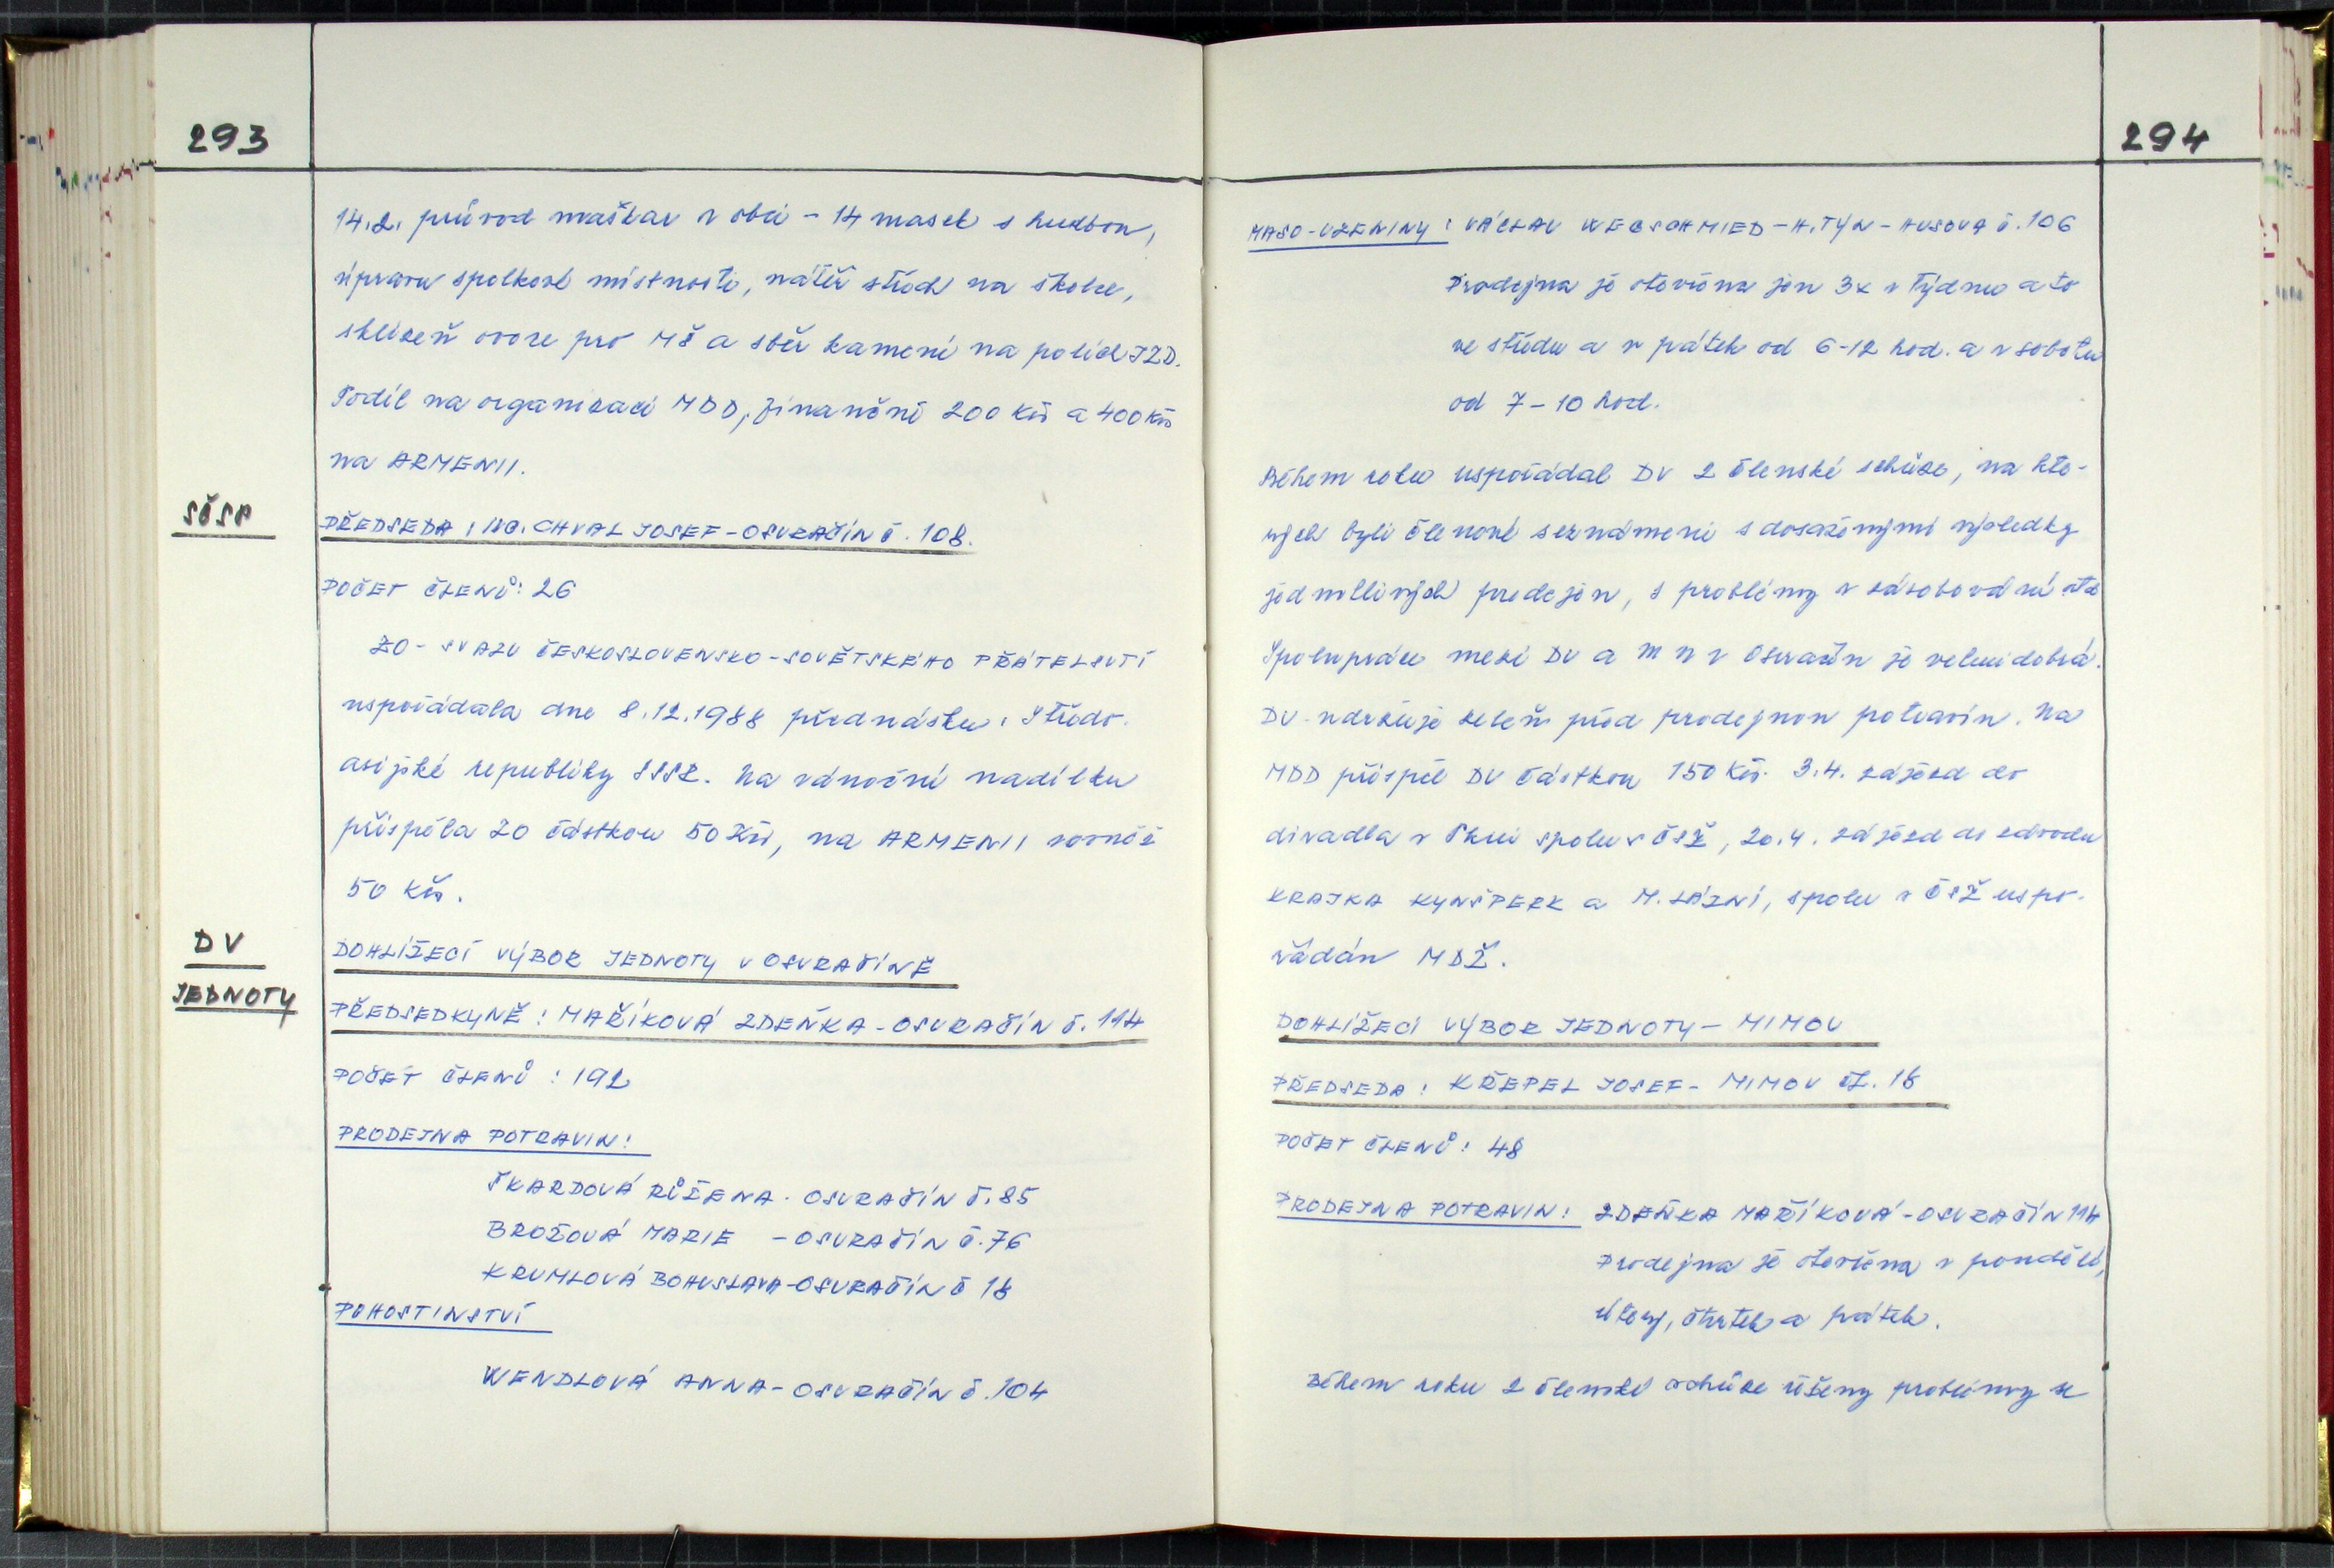 293
14.2. průvod maškar v obci - 14 masek s hudbou,
úpravu spolkové místnosti, nátěr střech na školce,
sklizeň ovoce pro MŠ a sběr kamení na polích JZD.
Podíl na organizaci MDD, finančně 200 Kčs a 400 Kčs
na ARMENII.
SČSP
PŘEDSEDA: ING. CHVAL JOSEF - OSVRAČÍN č. 108.
POČET ČLENŮ: 26
ZO - SVAZU ČESKOSLOVENSKO-SOVĚTSKÉHO PŘÁTELSTVÍ
uspořádala dne 8.12.1988 přednášku: Středo-
asijské republiky SSSR. Na vánoční nadílku
přispěla ZO částkou 50 Kčs, na ARMENII rovněž
50 Kčs.
DV
JEDNOTY
DOHLÍŽECÍ VÝBOR JEDNOTY V OSVRAČÍNĚ
PŘEDSEDKYNĚ: MAŘÍKOVÁ ZDEŇKA - OSVRAČÍN č. 114
POČET ČLENŮ: 192
PRODEJNA POTRAVIN:
ŠKARDOVÁ RŮŽENA - OSVRAČÍN č. 85
BROŽOVÁ MARIE - OSVRAČÍN č. 76
KRUMLOVÁ BOHUSLAVA - OSVRAČÍN č 18
POHOSTINSTVÍ
WENDLOVÁ ANNA - OSVRAČÍN č. 104
294
MASO-UZENINY: VÁCLAV WEBSCHMIED - H. TÝN - HUSOVA č. 106
Prodejna je otevřena jen 3x v týdnu a to
ve středu a v pátek od 6-12 hod. a v sobotu
od 7-10 hod.
Během roku uspořádal DV 2 členské schůze, na kte-
rých byli členové seznámeni s dosaženými výsledky
jednotlivých prodejen, s problémy v zásobování atd
Spolupráce mezi DV a MNV Osvračín je velmi dobrá.
DV - udržuje zeleň před prodejnou potravin. Na
MDD přispěl DV částkou 150 Kčs. 3.4. zájezd do
divadla v Plzni spolu s ČSŽ, 20.4. zájezd do závodu
KRAJKA KYNŠPERK a M. LÁZNÍ, spolu s ČSŽ uspo-
řádán MDŽ.
DOHLÍŽECÍ VÝBOR JEDNOTY - MIMOV
PŘEDSEDA: KŘEPEL JOSEF - MIMOV čl. 18
POČET ČLENŮ: 48
PRODEJNA POTRAVIN: ZDEŇKA MAŘÍKOVÁ - OSVRAČÍN 114
Prodejna je otevřena v pondělí,
úterý, čtvrtek a pátek.
Během roku 2 členské schůze řešeny problémy se